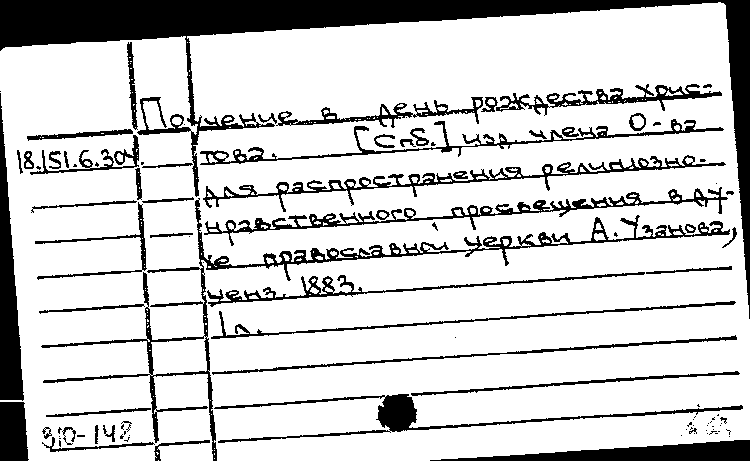 Поучение в день рождества Хрис-
18.151.6.304. това. [Спб.], изд. члена О-ва
для распространения религиозно-
нравственного просвещения в ду-
хе православной церкви А. Узанова,
ценз. 1883.
1 л.
310-148